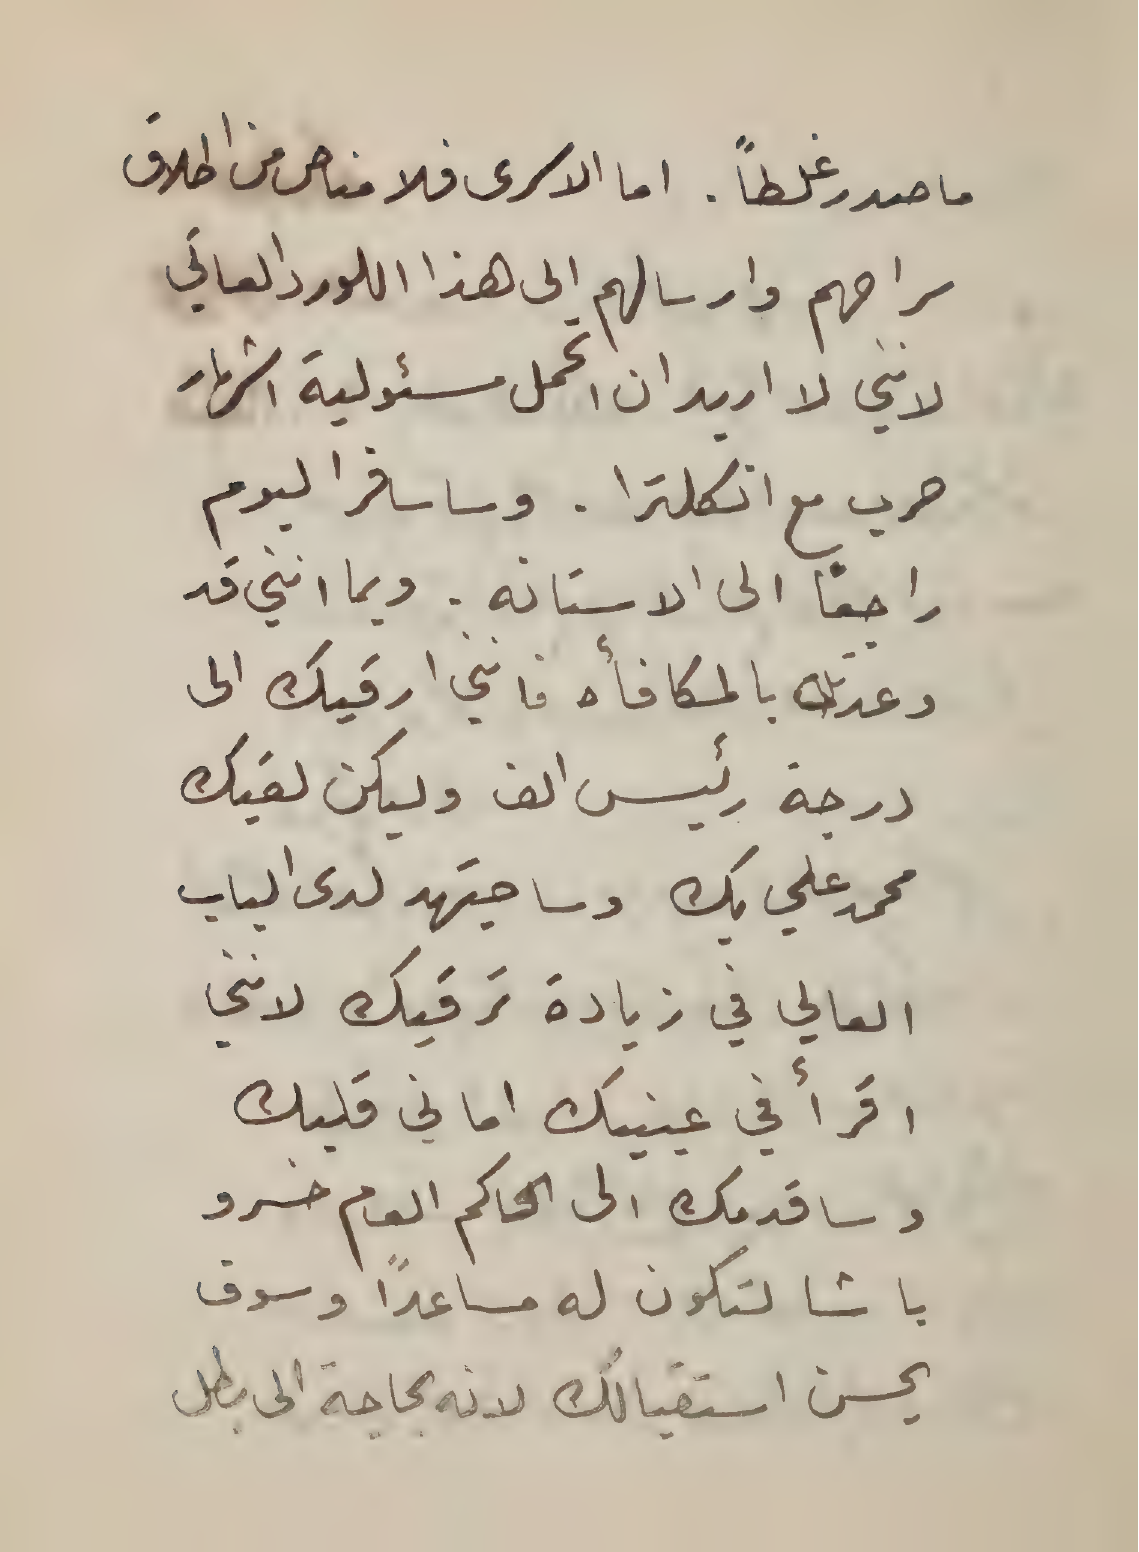 ما صدر غلطاً . اما الاسرى فلا مناص من اطلاق
سراحهم وارسالهم الى هذا اللورد العاتي
لانني لا اريد ان اتحمل مسئولية اشهار
حرب مع انكلترا . وساسافر اليوم
راجعًا الى الاستانه . وبما انني قد
وعدتك بالمكافأه فانني ارقيك الى
درجة رئيس الف وليكن لقبك
محمد علي بك وساجتهد لدى الباب
العالي في زيادة ترقيك لانني
اقرأ في عينيك امانى قلبك
وساقدمك الى الحاكم العام خسرو
باشا لتكون له مساعدًا وسوف
يحسن استقبالك لانه بحاجة الى بطل